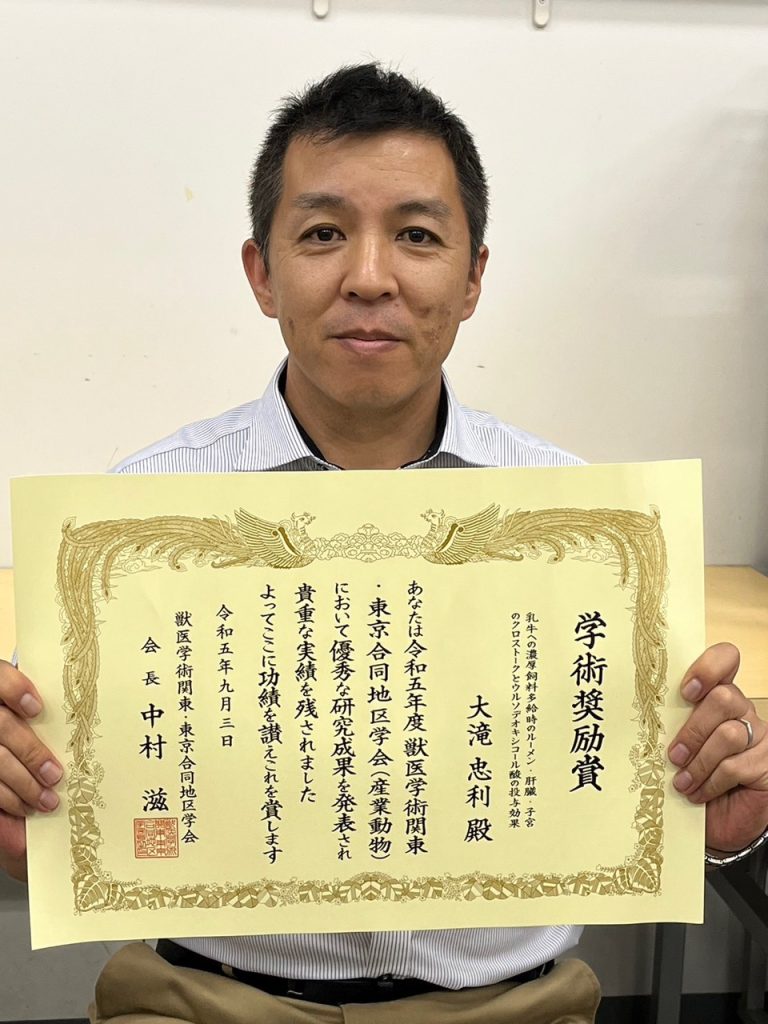 学術奨励賞
乳牛への濃厚飼料多給時のルーメン・肝臓・子宮
のクロストークとウルソデオキシコール酸の投与効果
大滝忠利殿
あなたは令和五年度獣医学術関東
・東京合同地区学会（産業動物）
において優秀な研究成果を発表され
貴重な実績を残されました
よってここに功績を讃えこれを賞します
令和五年九月三日
獣医学術関東・東京合同地区学会
会長 中村 滋